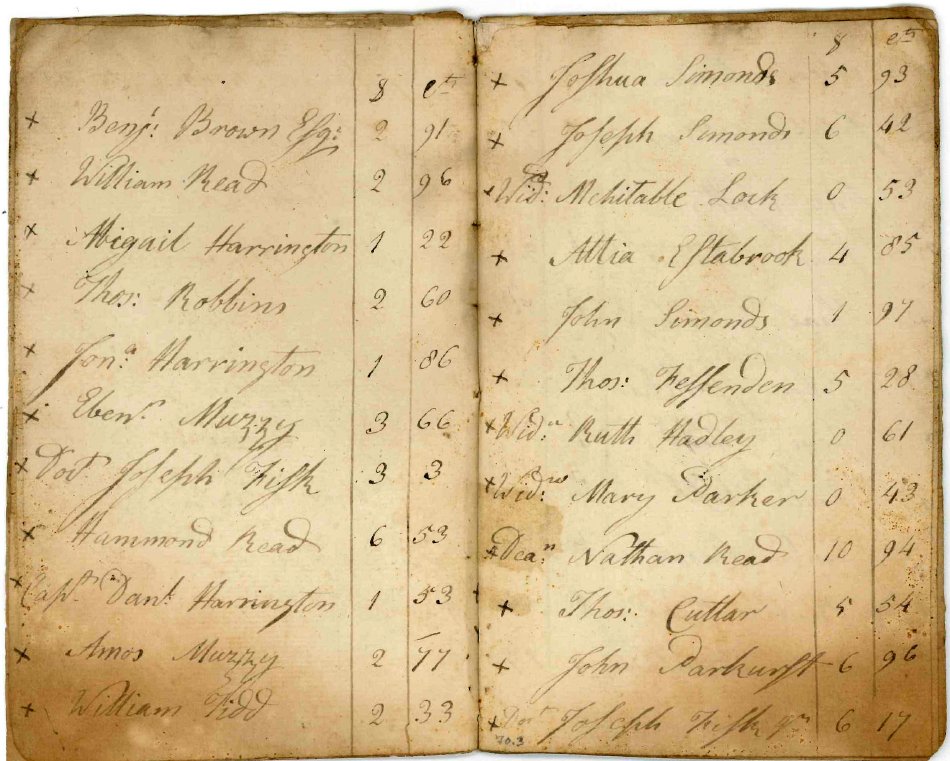 $ cts
× Benj: Brown Esq: 2 91
× William Read 2 96
× Abigail Harrington 1 22
× Thos: Robbins 2 60
× Jona: Harrington 1 86
× Ebenr Muzzy 3 66
× Doct Joseph Fisk 3 3
× Hammond Read 6 53
× Capt. Danl: Harrington 1 53
× Amos Muzzy 2 77
× William Tidd 2 33
$ cts
× Joshua Simonds 5 93
× Joseph Simonds 6 42
× Wid: Mehitable Lock 0 53
× Attia Estabrook 4 85
× John Simonds 1 97
× Thos: Fessenden 5 28
× Wid: Ruth Hadley 0 61
× Widw: Mary Parker 0 43
× Dean: Nathan Read 10 94
× Thos: Cuttar 5 54
× John Parkurst 6 96
× Doct Joseph Fisk Jn 6 17
70.3